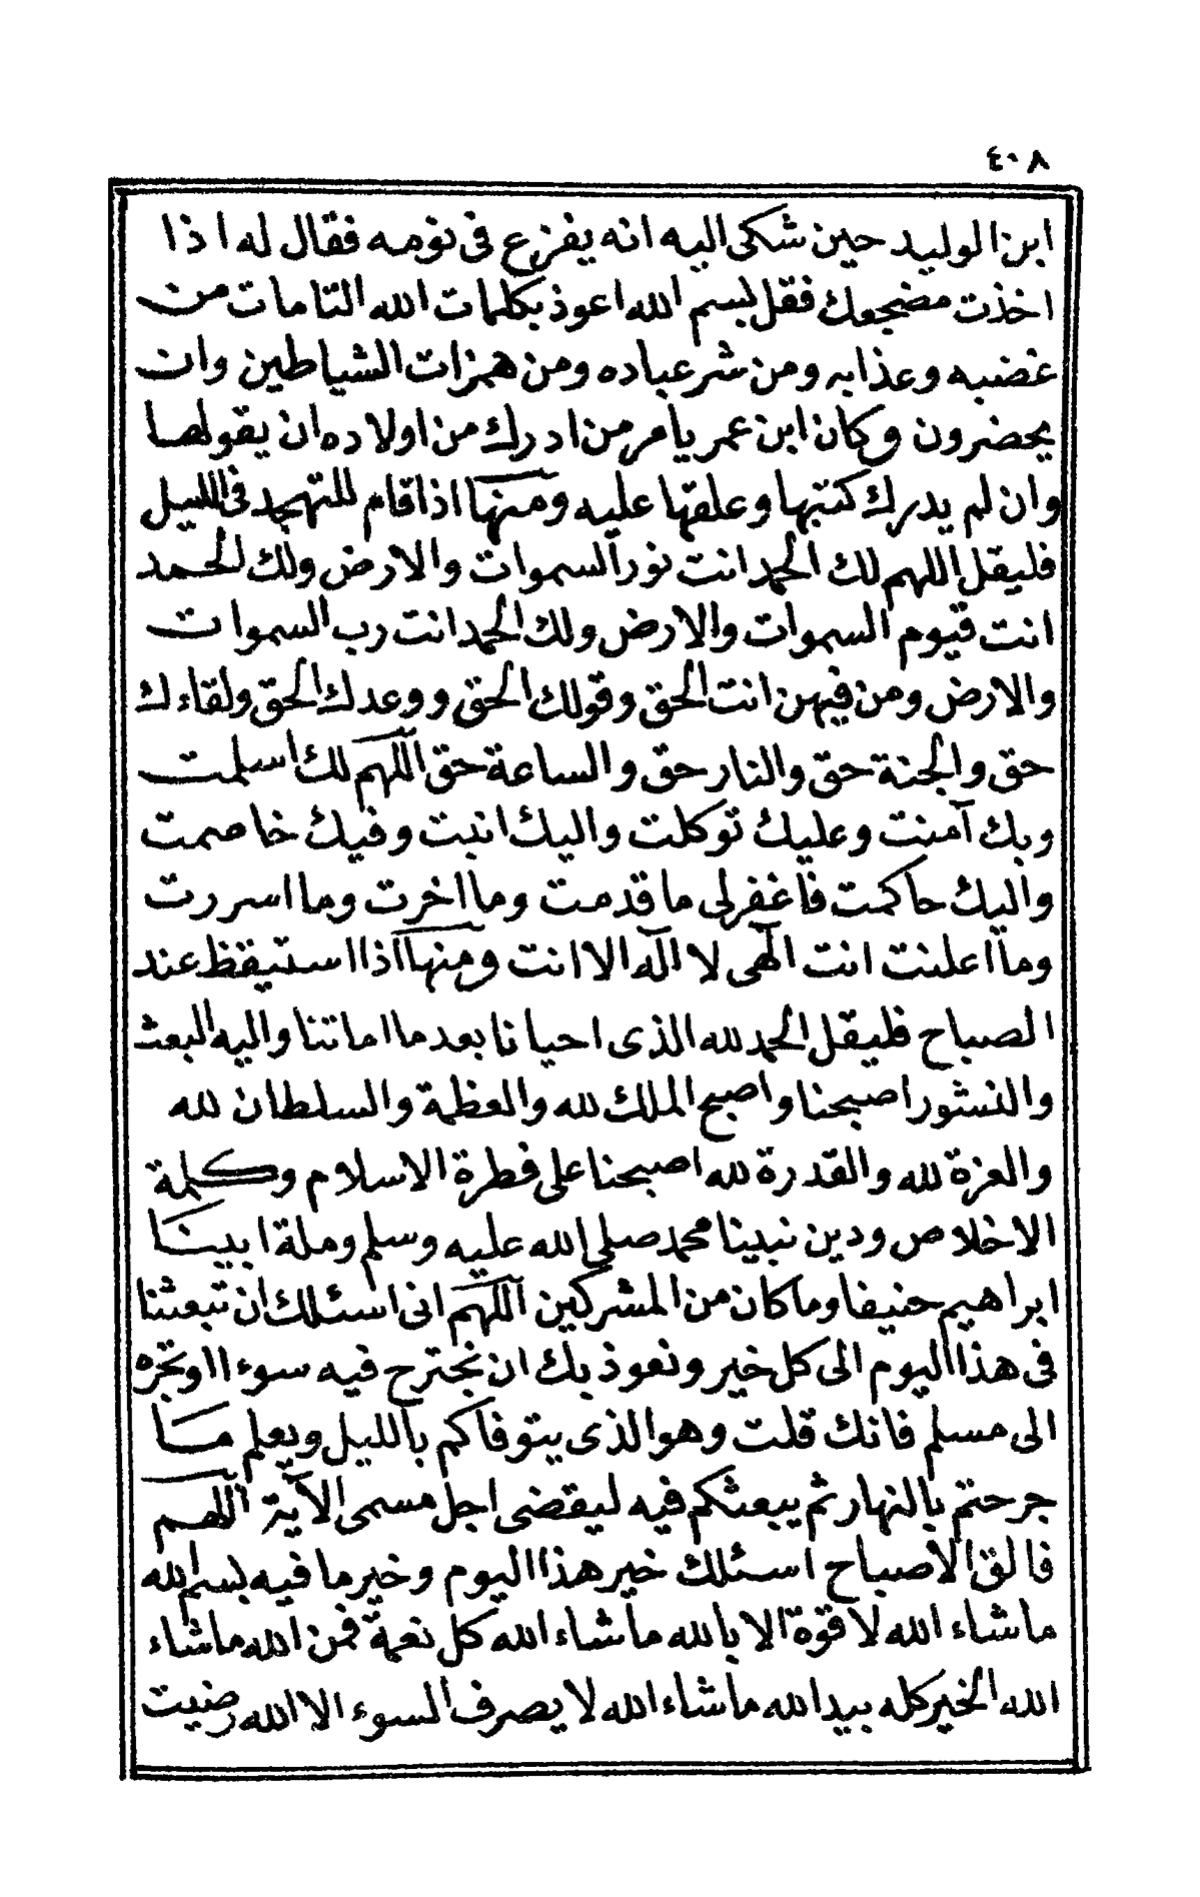 ٤٠٨
ابن الوليد حين شكى اليه انه يفزع فى نومه فقال له اذا
اخذت مضجعك فقل بسم الله اعوذ بكلمات الله التامات من
غضبه وعذابه ومن شر عباده ومن همزات الشياطين وان
يحضرون وكان ابن عمر يامر من ادرك من اولاده ان يقولها
وان لم يدرك كتبها وعلقها عليه ومنها اذا قام للتهجد فى الليل
فليقل اللهم لك الحمد انت نور السموات والارض ولك الحمد
انت قيوم السموات والارض ولك الحمد انت رب السموات
والارض ومن فيهن انت الحق وقولك الحق ووعدك الحق ولقاءك
حق والجنة حق والنار حق والساعة حق اللهم لك اسلمت
وبك آمنت وعليك توكلت واليك انبت وفيك خاصمت
واليك حاكمت فاغفر لى ما قدمت وما اخرت وما اسررت
وما اعلنت انت الهى لا اله الا انت ومنها اذا استيقظ عند
الصباح فليقل الحمد لله الذى احيانا بعد ما اماتنا واليه البعث
والنشور اصبحنا واصبح الملك لله والعظمة والسلطان لله
والعزة لله والقدرة لله اصبحنا على فطرة الاسلام وكلمة
الاخلاص ودين نبينا محمد صلى الله عليه وسلم وملة ابينا
ابراهيم حنيفا وما كان من المشركين اللهم انى اسئلك ان تبعثنا
فى هذا اليوم الى كل خير ونعوذ بك ان نجترح فيه سوءا او نجره
الى مسلم فانك قلت وهو الذى يتوفاكم بالليل ويعلم ما
جرحتم بالنهار ثم يبعثكم فيه ليقضى اجل مسمى الآية اللهم
فالق الاصباح اسئلك خير هذا اليوم وخير ما فيه بسم الله
ماشاء الله لا قوة الا بالله ماشاء الله كل نعمة فمن الله ماشاء
الله الخير كله بيد الله ماشاء الله لا يصرف السوء الا الله رضيت